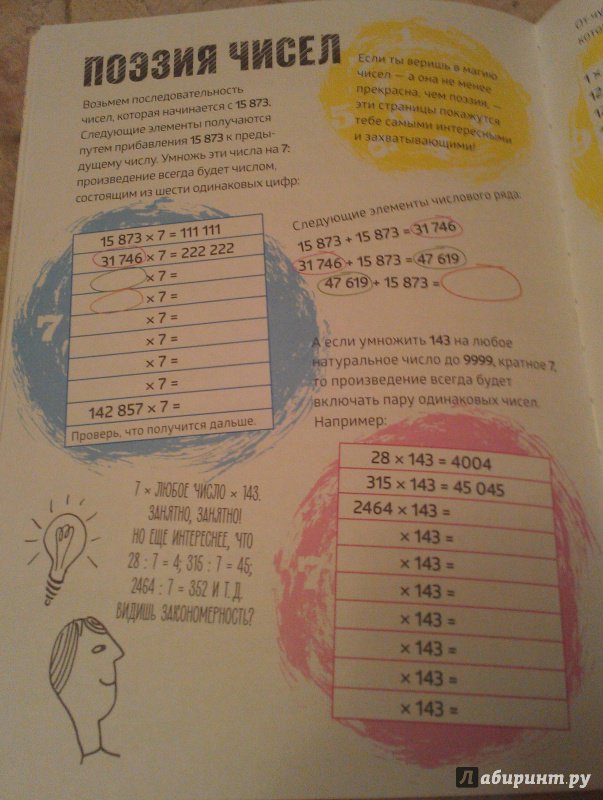 ПОЭЗИЯ ЧИСЕЛ
Возьмем последовательность
чисел, которая начинается с 15 873.
Следующие элементы получаются
путем прибавления 15 873 к преды-
дущему числу. Умножь эти числа на 7:
произведение всегда будет числом,
состоящим из шести одинаковых цифр:
Если ты веришь в магию
чисел — а она не менее
прекрасна, чем поэзия, —
эти страницы покажутся
тебе самыми интересными
и захватывающими!
15 873 × 7 = 111 111
31 746 × 7 = 222 222
× 7 =
× 7 =
× 7 =
× 7 =
× 7 =
× 7 =
142 857 × 7 =
Проверь, что получится дальше.
7
Следующие элементы числового ряда:
15 873 + 15 873 = 31 746
31 746 + 15 873 = 47 619
47 619 + 15 873 =
А если умножить 143 на любое
натуральное число до 9999, кратное 7,
то произведение всегда будет
включать пару одинаковых чисел.
Например:
28 × 143 = 4004
315 × 143 = 45 045
2464 × 143 =
× 143 =
× 143 =
× 143 =
× 143 =
× 143 =
× 143 =
× 143 =
7 × ЛЮБОЕ ЧИСЛО × 143.
ЗАНЯТНО, ЗАНЯТНО!
НО ЕЩЕ ИНТЕРЕСНЕЕ, ЧТО
28 : 7 = 4; 315 : 7 = 45;
2464 : 7 = 352 И Т. Д.
ВИДИШЬ ЗАКОНОМЕРНОСТЬ?
От чу
кото
1 ×
Лабиринт.ру